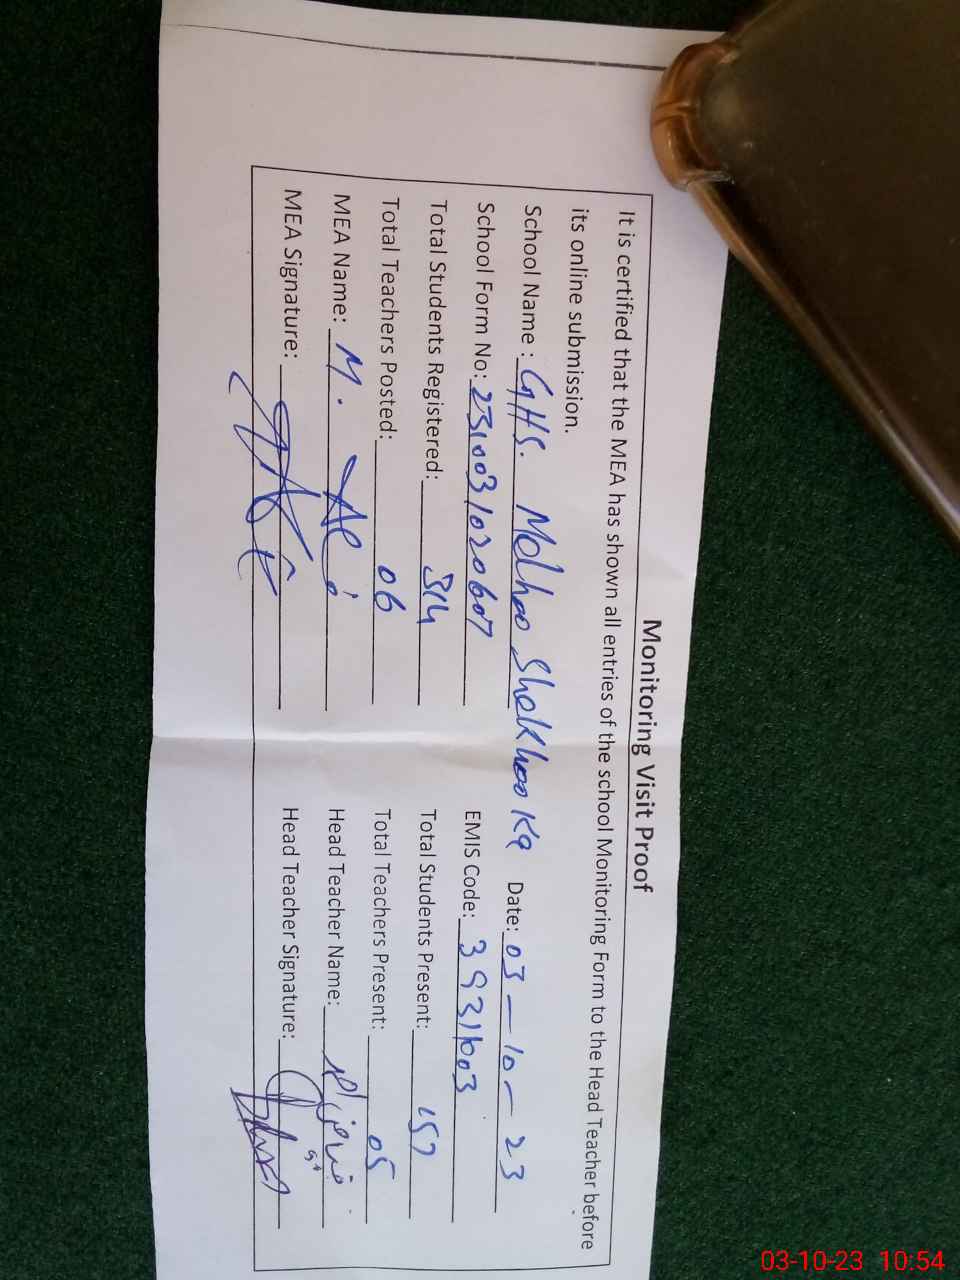 Monitoring Visit Proof
It is certified that the MEA has shown all entries of the school Monitoring Form to the Head Teacher before
its online submission.
School Name : GHS. Molhoo Shekhoo Ka Date: 03-10-23
School Form No: 2310031020607 EMIS Code: 39311003
Total Students Registered: 314 Total Students Present: 157
Total Teachers Posted: 06 Total Teachers Present: 05
MEA Name: M. Ali Head Teacher Name:
MEA Signature: Head Teacher Signature:
03-10-23 10:54